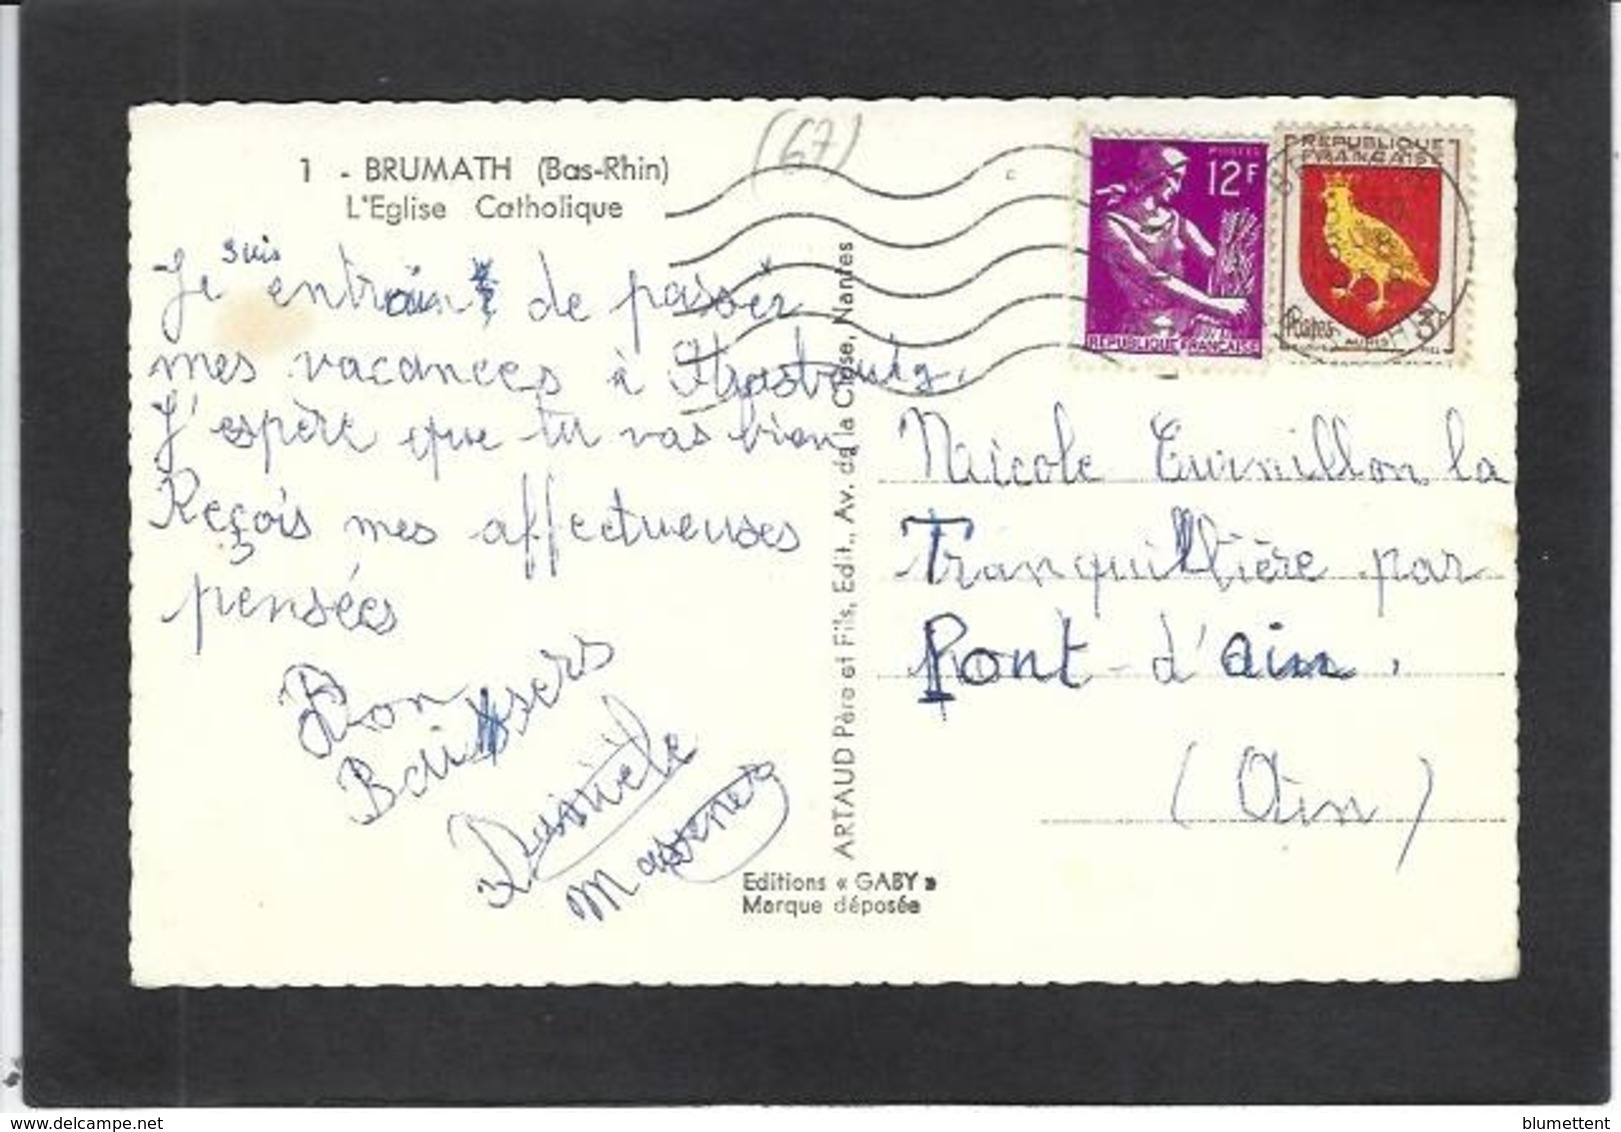 (67)
1 - BRUMATH (Bas-Rhin)
L'Eglise Catholique
Je suis entrain de passer
mes vacances à Strasbourg.
J'espère que tu vas bien
Reçois mes affectueuses
pensées
Bon
Baissers
Danièle
ARTAUD Père et Fils, Edit., Av. de la Close, Nantes
Editions « GABY »
Marque déposée
POSTES
12F
REPUBLIQUE FRANÇAISE
REPUBLIQUE
FRANÇAISE
Postes
AUNIS
3F
Nicole Curnillon la
Tranquillière par
Pont-d'ain.
(Ain)
blumettent